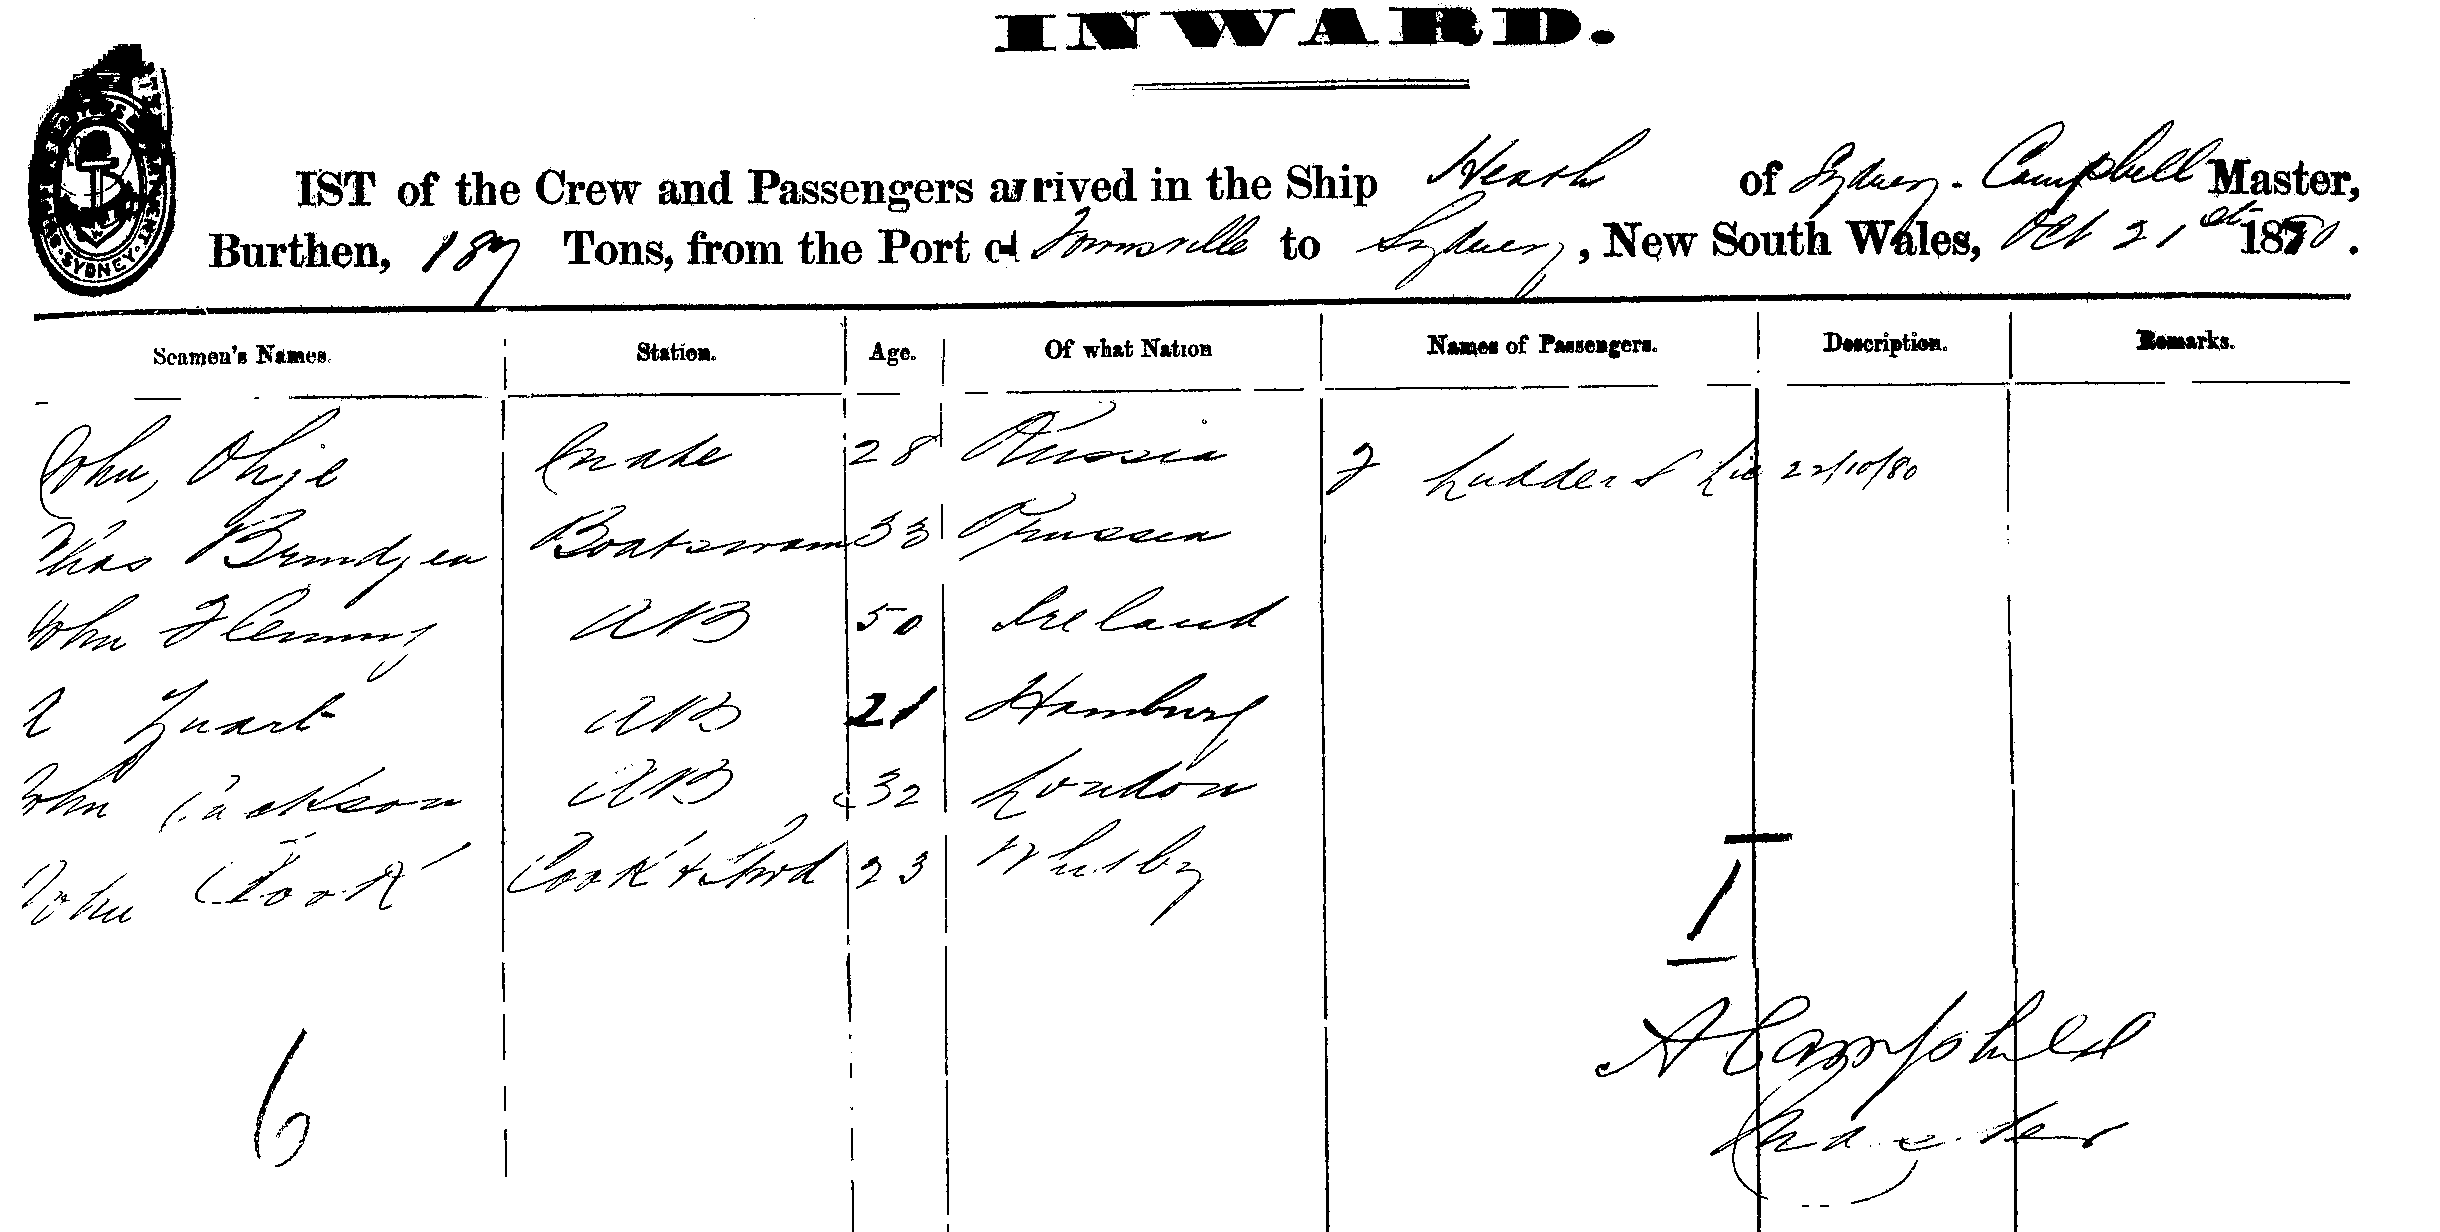 INWARD.
IST of the Crew and Passengers arrived in the Ship Heath of Sydney. Campbell Master,
Burthen, 187 Tons, from the Port of Townsville to Sydney, New South Wales, Oct 21 1880.
Seamen's Names. Station. Age. Of what Nation Names of Passengers. Description. Remarks.
John, Mate 28 Russia Ludders 22/10/80
Boatswain 33 Prussia
John Fleming AB 50 Ireland
AB 21 Hamburg
John Jackson AB 32 London
John Cook Cook & Stwd 23 Whitby
1
A Campbell
Master
6
SYDNEY